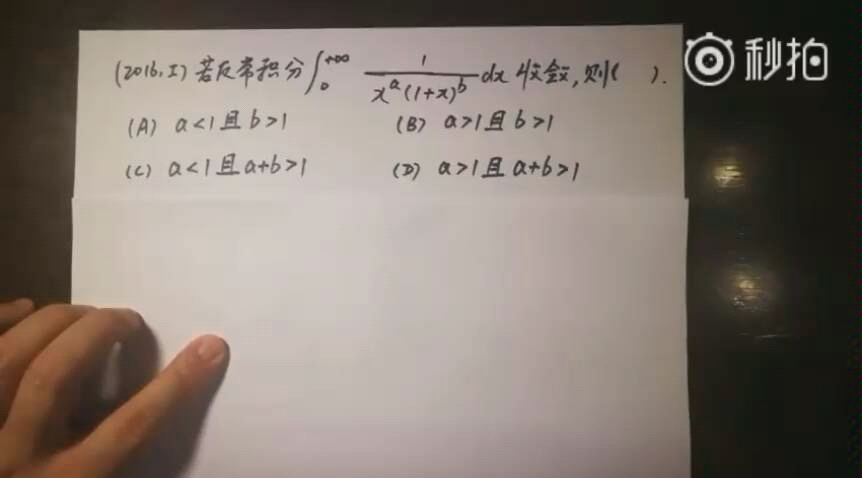 秒拍
(2016,I) 若反常积分∫₀^{+∞} 1/(x^a(1+x)^b) dx 收敛,则( ).
(A) a<1且b>1 (B) a>1且b>1
(C) a<1且a+b>1 (D) a>1且a+b>1